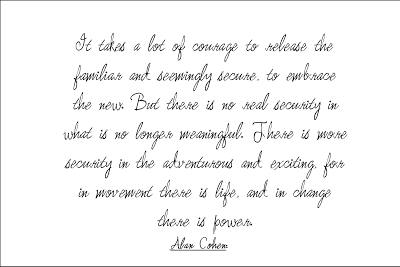 It takes a lot of courage to release the
familiar and seemingly secure, to embrace
the new. But there is no real security in
what is no longer meaningful. There is more
security in the adventurous and exciting, for
in movement there is life, and in change
there is power.
Alan Cohen